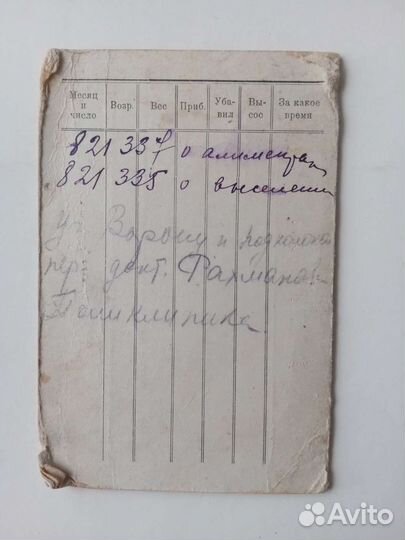 Месяц и число Возр. Вес Приб. Уба- вил Вы- сос За какое время
821 337 о алиментах
821 335 о выселении
ул. и
пер. дект. Рахманов
Поликлиника
Avito